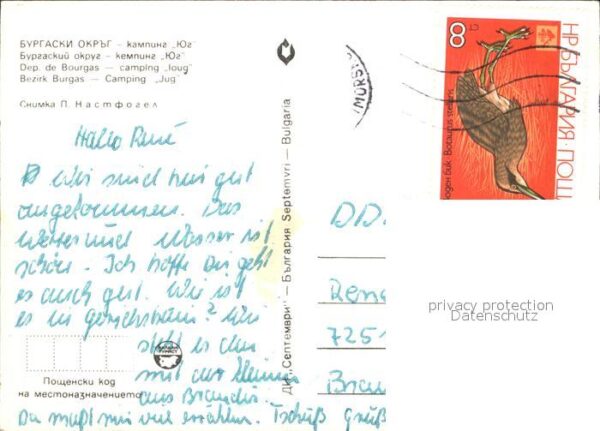 БУРГАСКИ ОКРЪГ - къмпинг „Юг"
Бургаский округ - кемпинг „Юг"
Dep. de Bourgas — camping „Ioug"
Bezirk Burgas — Camping „Jug"
Снимка П. Настфогел
Hallo René
Wir sind hier gut
angekommen. Das
Wetter und Wasser ist
schön. Ich hoffe Dir geht
es auch gut. Wie ist
es in ? Wie
steht es denn
mit der
aus Brandis.
Du mußt mir viel erzählen. Tschüß Grüß
Пощенски код
на местоназначението
ДК „Септември" — България Septemvri — Bulgaria
8 ст
НР БЪЛГАРИЯ · ПОЩ
воден бик Botaurus stellaris
MORSK
DD
Ren
725
Bran
privacy protection
Datenschutz